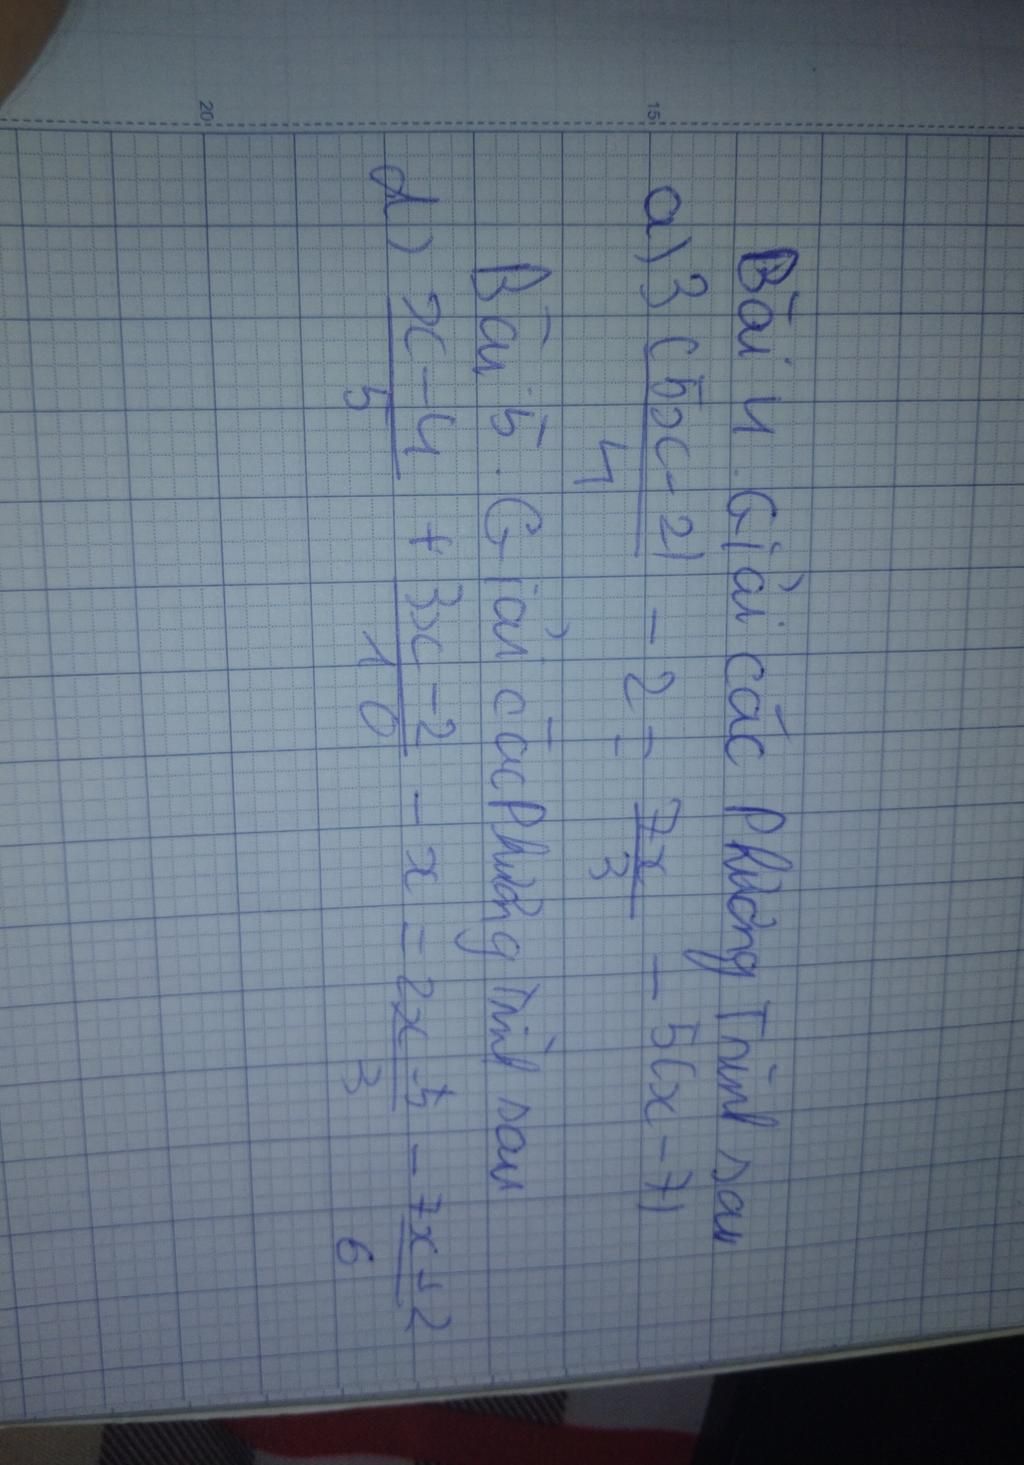 15
20
Bài 4. Giải các Phương Trình sau
a) 3(5x-2)/4 - 2 = 7x/3 - 5(x-7)
Bài 5. Giải các Phương Trình sau
d) x-4/5 + 3x-2/10 - x = 2x-5/3 - 7x+2/6